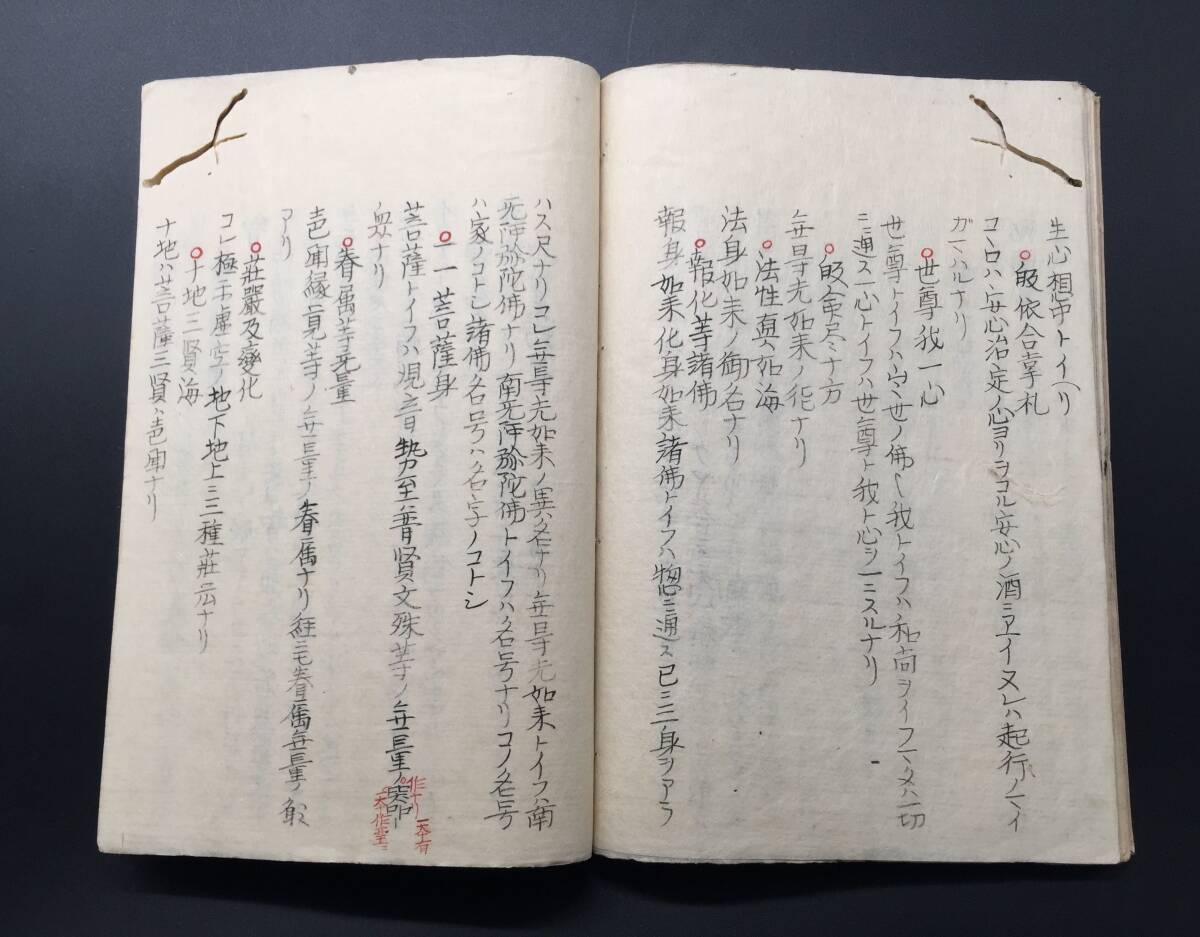 生心想中トイヘリ
帰依合掌礼
コヽロハ安心治定ノ心ヨリヲコル安心ノ酒ニヱイヌレハ起行ノマイ
ガマハルナリ
世尊我一心
世尊トイフハ
世ノ佛
我トイフハ和尚ヲイフ
一切
ニ通ス一心トイフハ世尊ト我ト心ヲ一ニスルナリ
帰命尽十方
無㝵光如来ノ
ナリ
法性真如海
法身如来ノ御名ナリ
報化等諸佛
報身如来化身如来諸佛トイフハ惣ニ通ス已上三身ヲアラ
ハス尺ナリコレ無㝵光如来ノ異名ナリ無㝵光如来トイフハ南
无阿弥陀佛ナリ南无阿弥陀佛トイフハ名号ナリコノ名号
ハ家ノコトシ諸佛名号ハ名字ノコトシ
一一菩薩身
菩薩トイフハ観音勢至普賢文殊等ノ無量ノ
衆ナリ
眷属等无量
声聞縁覚等ノ無量ノ眷属ナリ経ニモ眷属無量ノ
アリ
荘嚴及變化
コレ極
虚空
地下地上三種荘厳ナリ
十地三賢海
十地ハ菩薩三賢ハ声聞ナリ